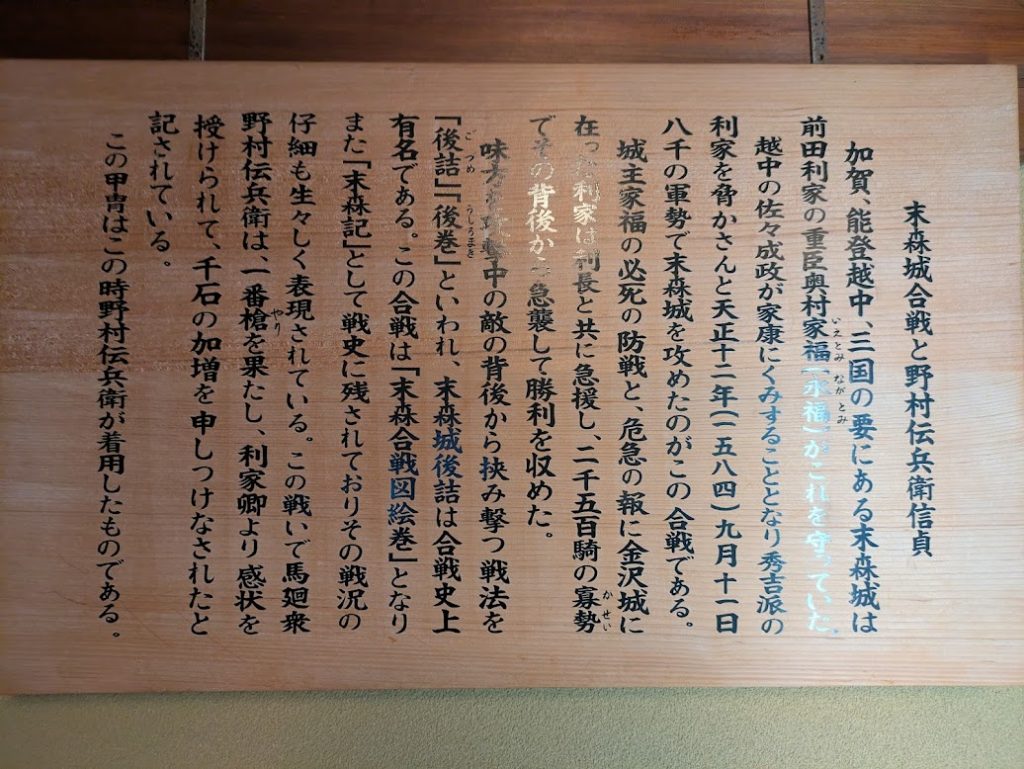 末森城合戦と野村伝兵衛信貞
加賀、能登越中、三国の要にある末森城は
前田利家の重臣奥村家福(永福)がこれを守っていた。
いえとみ ながとみ
越中の佐々成政が家康にくみすることとなり秀吉派の
利家を脅かさんと天正十二年(一五八四)九月十一日
八千の軍勢で末森城を攻めたのがこの合戦である。
城主家福の必死の防戦と、危急の報に金沢城に
在った利家は利長と共に急援し、二千五百騎の寡勢
かせい
でその背後から急襲して勝利を収めた。
味方を攻撃中の敵の背後から挟み撃つ戦法を
「後詰」「後巻」といわれ、末森城後詰は合戦史上
ごつめ うしろまき
有名である。この合戦は「末森合戦図絵巻」となり
また「末森記」として戦史に残されておりその戦況の
仔細も生々しく表現されている。この戦いで馬廻衆
野村伝兵衛は、一番槍を果たし、利家卿より感状を
やり
授けられて、千石の加増を申しつけなされたと
記されている。
この甲冑はこの時野村伝兵衛が着用したものである。